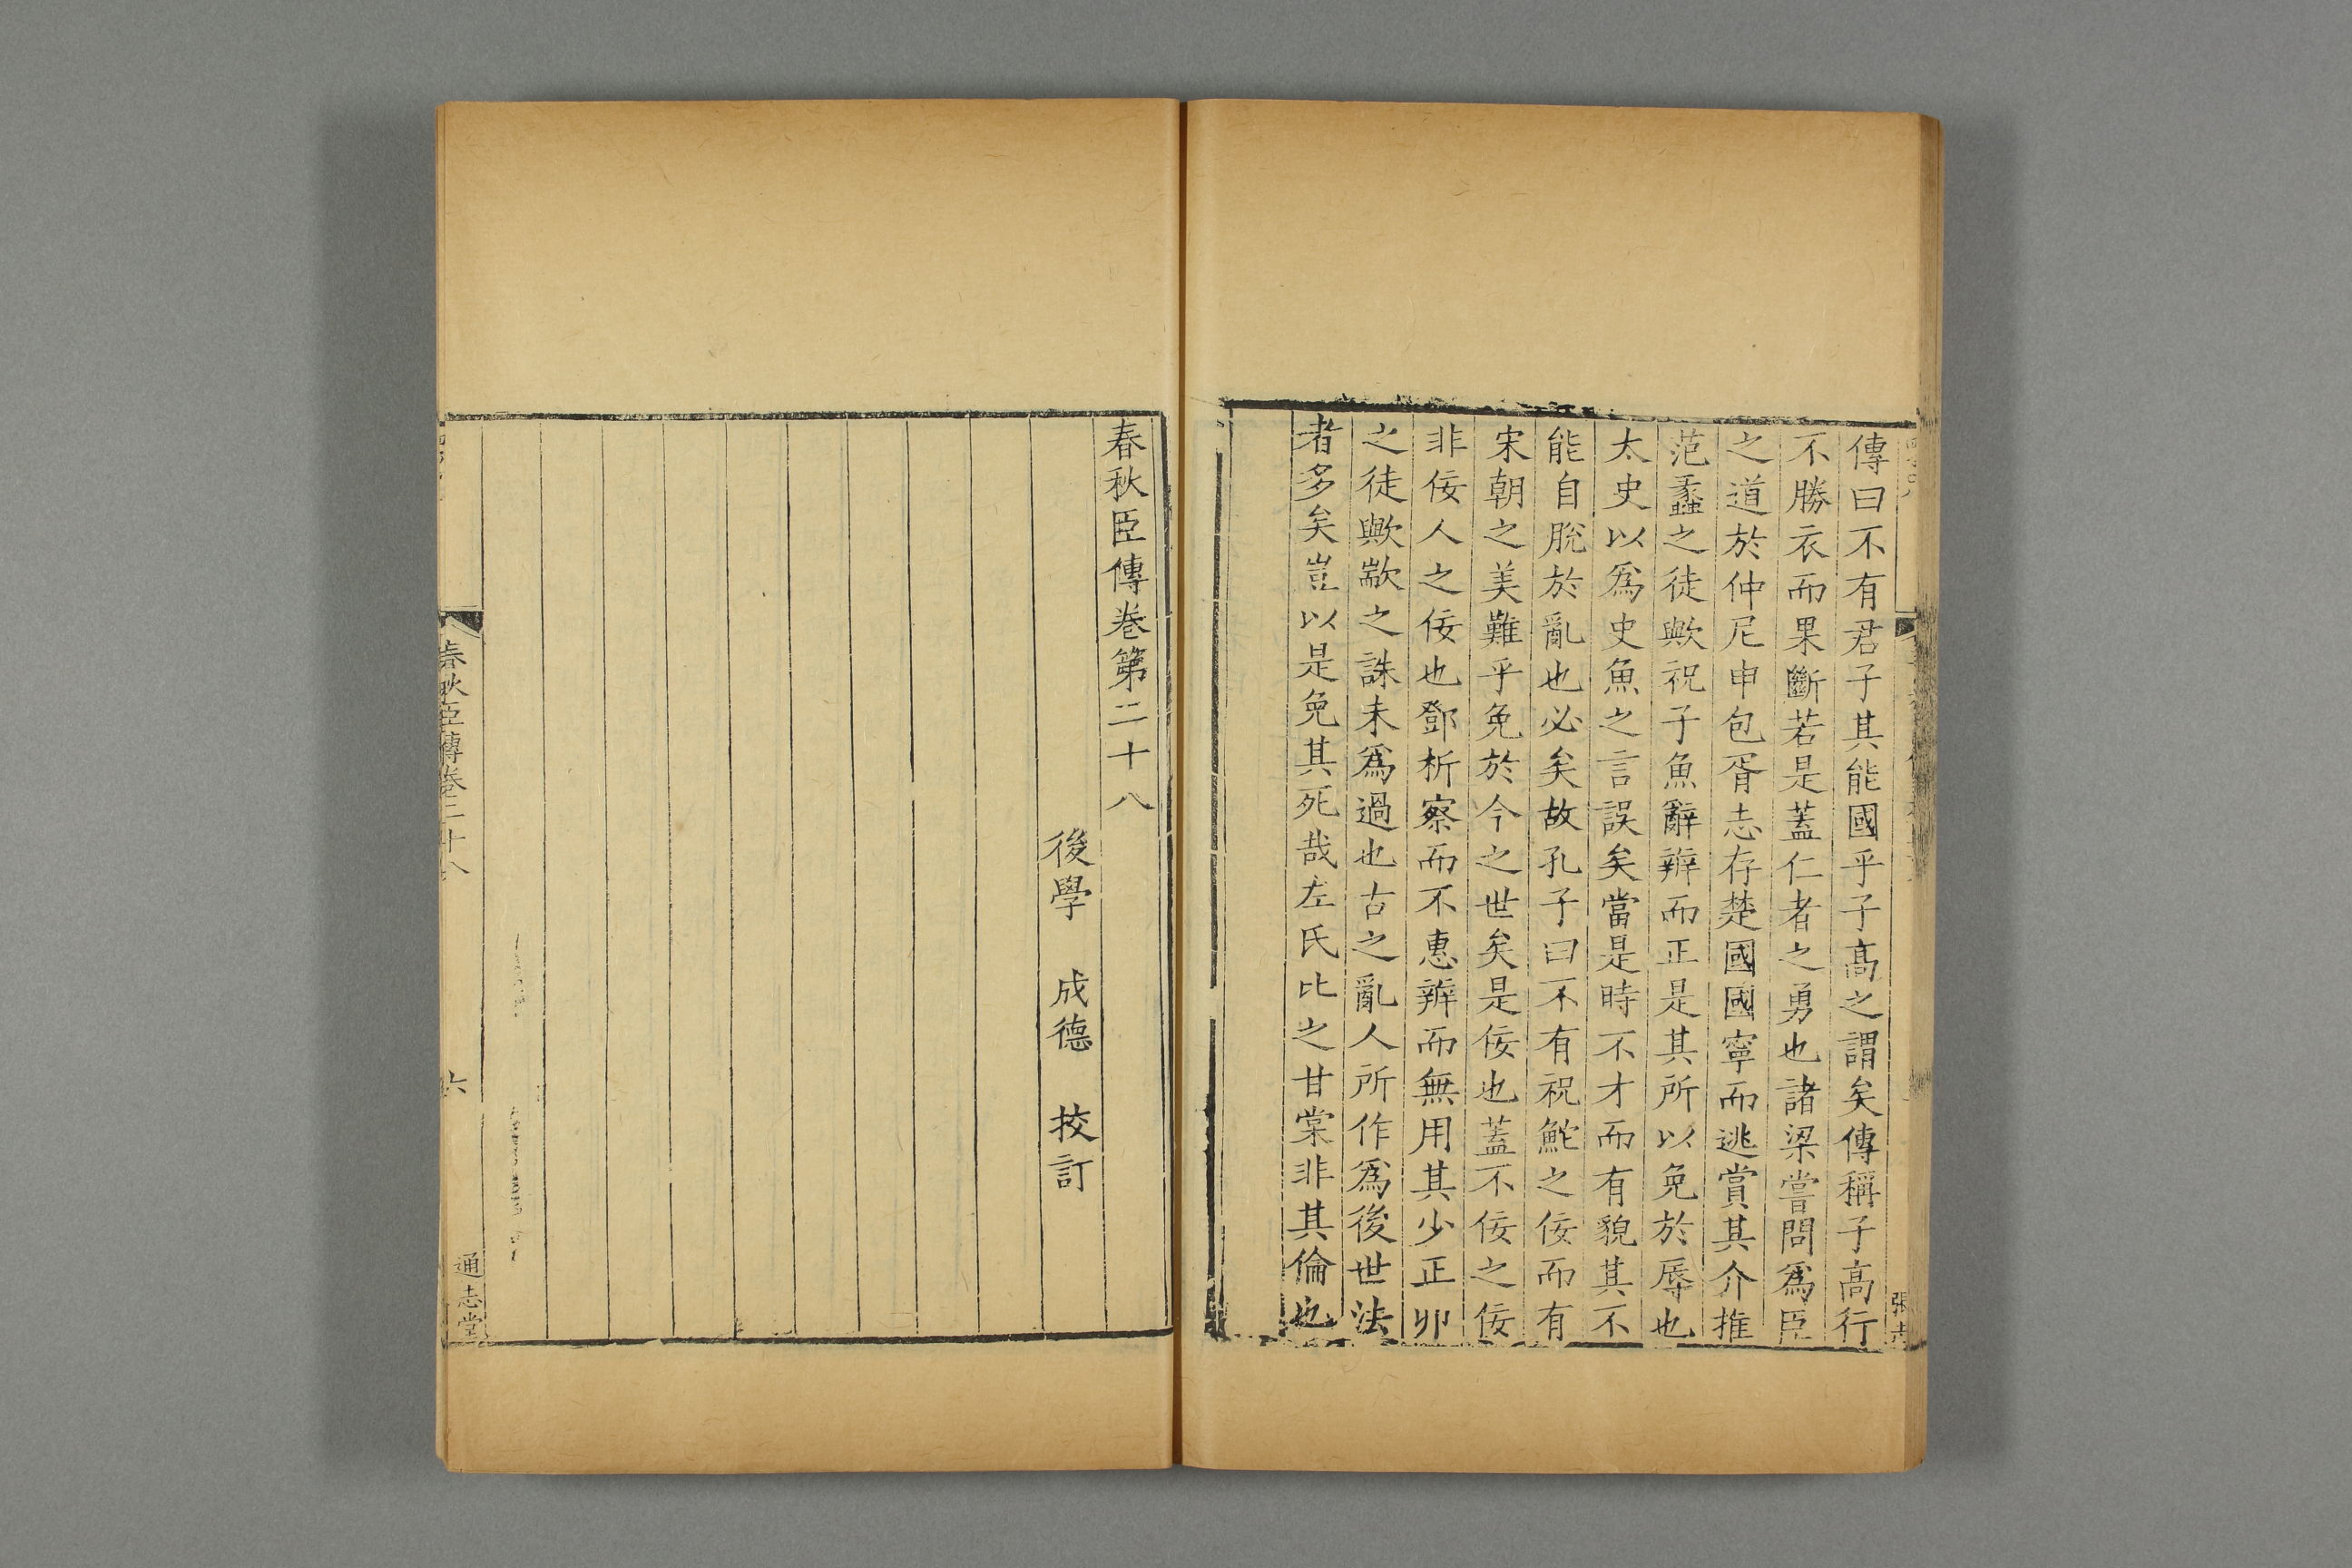 傳曰不有君子其能國乎子髙之謂矣傳稱子髙行
不勝衣而果斷若是蓋仁者之勇也諸梁嘗問爲臣
之道於仲尼申包胥志存楚國國寧而逃賞其介推
范蠡之徒歟祝子魚辭辨而正是其所以免於辱也
太史以爲史魚之言誤矣當是時不才而有貌其不
能自脫於亂也必矣故孔子曰不有祝鮀之佞而有
宋朝之美難乎免於今之世矣是佞也蓋不佞之佞
非佞人之佞也鄧析察而不惠辨而無用其少正卯
之徒歟歂之誅未爲過也古之亂人所作爲後世法
者多矣豈以是免其死哉左氏比之甘棠非其倫也
春秋臣傳卷第二十八
後學 成德 挍訂
春秋臣傳卷二十八
六
通志堂